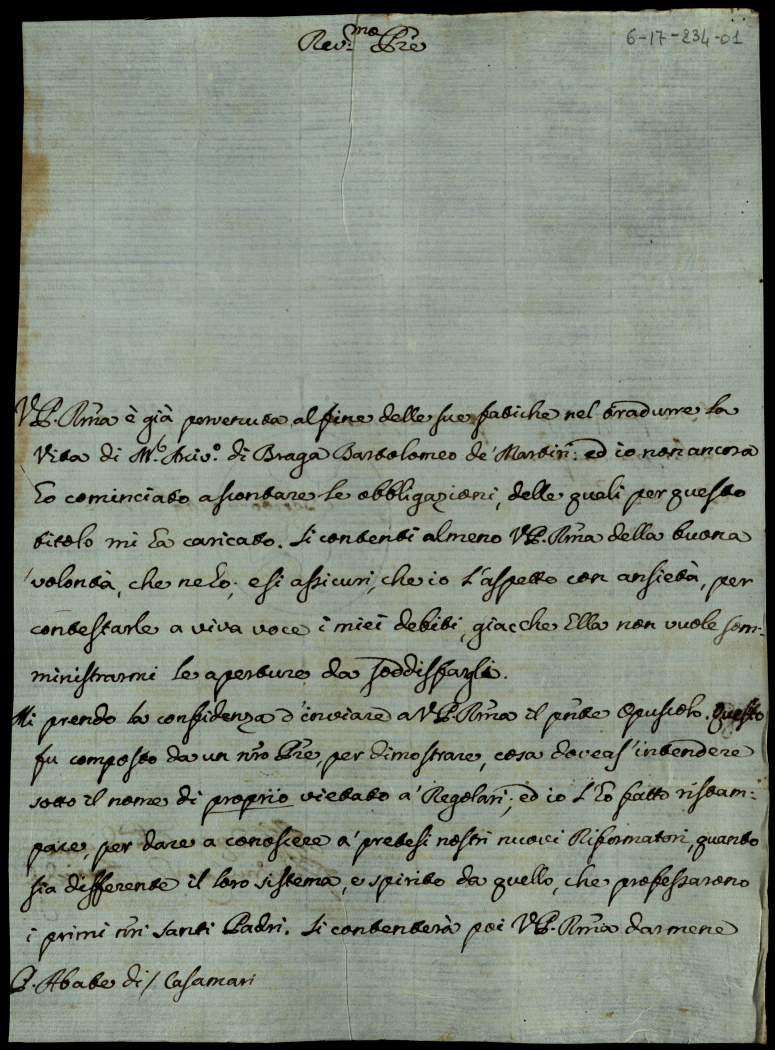 Rev.mo Pre
6-17-234-01
V.P. Rma è già pervenuta al fine delle sue fatiche nel tradurre la
Vita di M.r Arciv.o di Braga Bartolomeo de' Martiri: ed io non ancora
ho cominciato a scontare le obbligazioni, delle quali per questo
titolo mi ha caricato. Si contenti almeno V.P. Rma della buona
volontà, che ne ho; e si assicuri, che io l'aspetto con ansietà, per
contestarle a viva voce i miei debiti, giacche Ella non vuole som-
ministrarmi le aperture da soddisfargli.
Mi prendo la confidenza d'inviare a V.P. Rma il pnte Opuscolo. Questo
fu composto da un nro Pre, per dimostrare, cosa doveas' intendere
sotto il nome di proprio vietato a' Regolari; ed io l'ho fatto ristam:
pare, per dare a conoscere a' pretesi nostri nuovi Riformatori, quanto
sia differente il loro sistema, e spirito da quello, che professarono
i primi nri santi Padri. Si contenterà poi V.P. Rma darmene
P. Abate di / Casamari